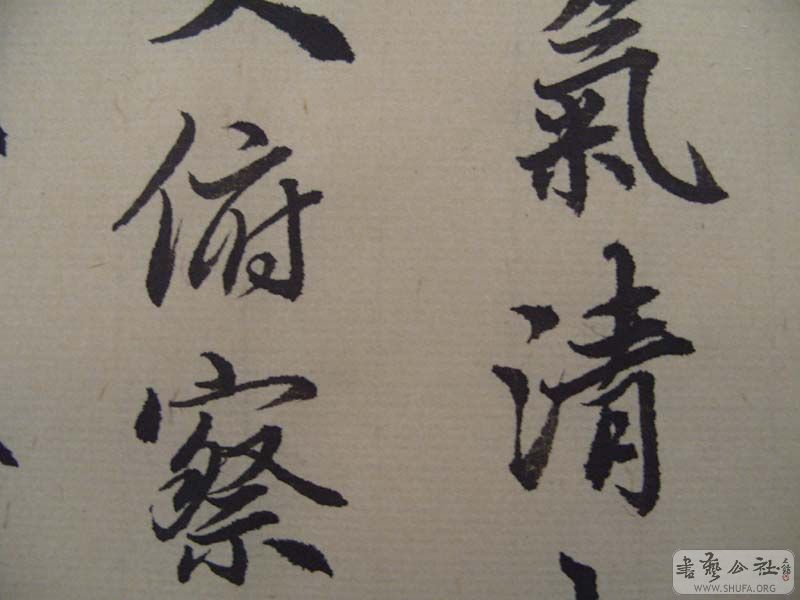 氣清
俯察
書藝公社
WWW.SHUFA.ORG